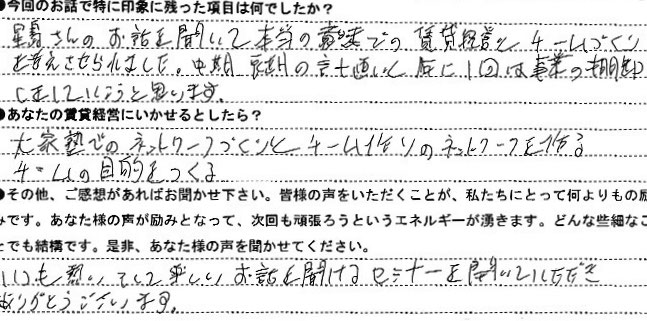 ●今回のお話で特に印象に残った項目は何でしたか?
さんの お話を聞いて本当の意味での 賃貸経営と チームづくり
を考えさせられました。中期 長期の計画と 年に1回は事業の棚卸
をしていこうと思います。
●あなたの賃貸経営にいかせるとしたら?
大家塾でのネットワークづくりと チーム作りのネットワークを作る
チームの目的をつくる
●その他、ご感想があればお聞かせ下さい。皆様の声をいただくことが、私たちにとって何よりもの励
みです。あなた様の声が励みとなって、次回も頑張ろうというエネルギーが湧きます。どんな些細なこ
とでも結構です。是非、あなた様の声を聞かせてください。
いつも熱い そして楽しい お話を聞けるセミナーを開いていただき
ありがとうございます。